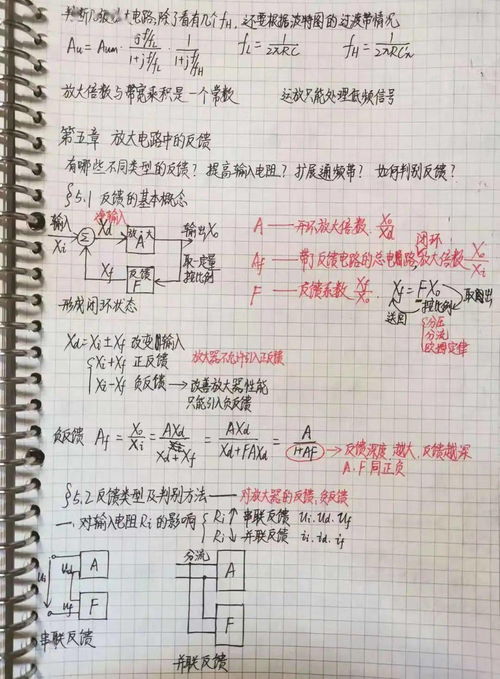 大电路,除了看有几个fH,还要根据波特图的过渡带情况
Au = Aum · jf/fL / 1+jf/fL · 1 / 1+jf/fH   fL = 1/2πRC   fH = 1/2πRC
放大倍数与带宽乘积是一个常数   运放只能处理低频信号
第五章 放大电路中的反馈
有哪些不同类型的反馈？提高输入电阻？扩展通频带？如何判别反馈？
§5.1 反馈的基本概念
输入 Xi Σ 净输入 Xd 放大 A 输出Xo
Xf 反馈 F 取一定量 按比例
形成闭环状态
A — 开环放大倍数 Xo/Xd
闭环
Af — 带了反馈电路的总电路放大倍数 Xo/Xi
F — 反馈系数 Xf/Xo   Xf = FXo 取图出
送回 按比例
分压
分流
欧姆定律
Xd = Xi ± Xf 改变输入
Xi+Xf 正反馈 放大器不允许引入正反馈
Xi-Xf 负反馈 → 改善放大器性能
只能引入负反馈
负反馈 Af = Xo/Xi = AXd/Xd+Xf = AXd/Xd+FAXd = A/1+AF → 反馈深度,越大,反馈越深
A、F同正负
§5.2 反馈类型及判别方法 — 对放大器的反馈,负反馈
一、对输入电阻Ri的影响 Ri↑ 串联反馈 ui.ud.uf
Ri↓ 并联反馈 ii.id.if
ui ud A uf F
串联反馈
分流 A F
并联反馈